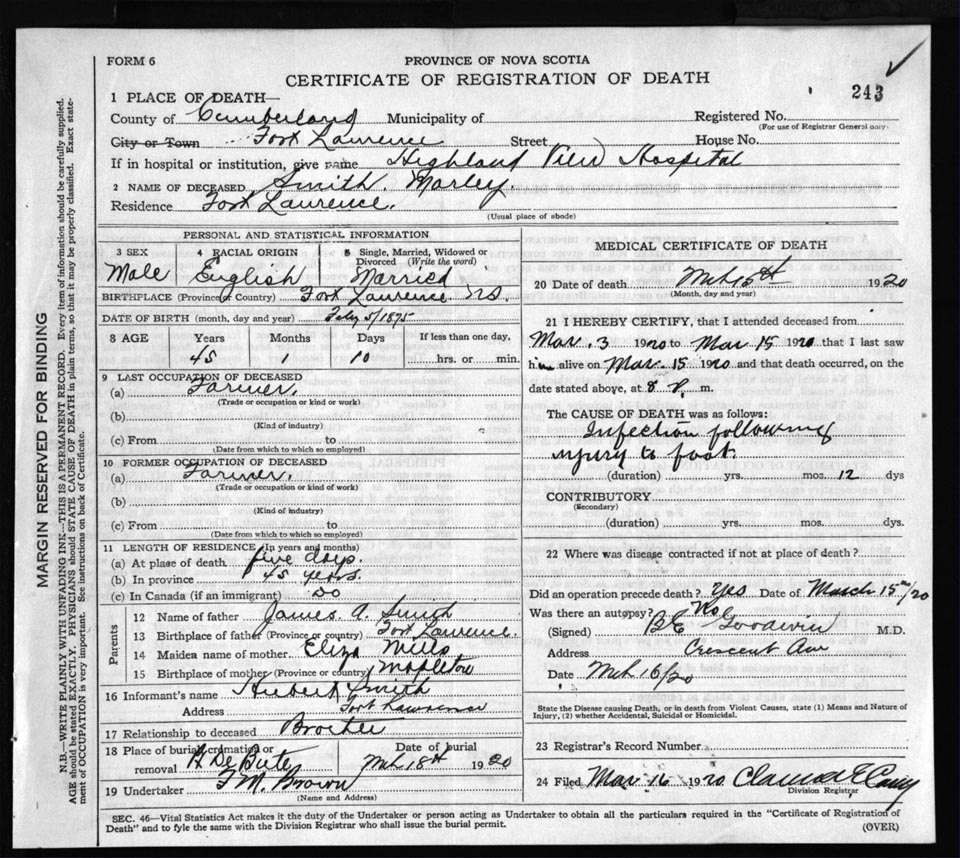 FORM 6
PROVINCE OF NOVA SCOTIA
CERTIFICATE OF REGISTRATION OF DEATH
243
1 PLACE OF DEATH—
County of Cumberland Municipality of Registered No.
(For use of Registrar General only)
City or Town Fort Lawrence Street House No.
If in hospital or institution, give name Highland View Hospital
2 NAME OF DECEASED Smith. Morley.
Residence Fort Lawrence.
(Usual place of abode)
PERSONAL AND STATISTICAL INFORMATION
3 SEX 4 RACIAL ORIGIN 5 Single, Married, Widowed or Divorced (Write the word)
Male English Married
BIRTHPLACE (Province or Country) Fort Lawrence NS.
DATE OF BIRTH (month, day and year) Feby 5/1875
8 AGE Years Months Days If less than one day,
45 1 10 hrs. or min.
9 LAST OCCUPATION OF DECEASED
(a) Farmer.
(Trade or occupation or kind of work)
(b)
(Kind of industry)
(c) From to
(Date from which to which so employed)
10 FORMER OCCUPATION OF DECEASED
(a) Farmer.
(Trade or occupation or kind of work)
(b)
(Kind of industry)
(c) From to
(Date from which to which so employed)
11 LENGTH OF RESIDENCE (In years and months)
(a) At place of death five days.
(b) In province 45 years.
(c) In Canada (if an immigrant) Do
Parents
12 Name of father James A. Smith
13 Birthplace of father (Province or country) Fort Lawrence.
14 Maiden name of mother Eliza Mills
15 Birthplace of mother (Province or country) Mapleton
16 Informant's name Hubert Smith
Address Fort Lawrence
17 Relationship to deceased Brother
18 Place of burial, cremation or removal Date of burial
Mch 18th 1920
19 Undertaker F M. Brown
(Name and Address)
MEDICAL CERTIFICATE OF DEATH
20 Date of death Mch 15th 1920
(Month, day and year)
21 I HEREBY CERTIFY, that I attended deceased from
Mar. 3 1920 to Mar 15 1920 that I last saw
him alive on Mar. 15 1920 and that death occurred, on the
date stated above, at 8 P. m.
The CAUSE OF DEATH was as follows:
Infection following
injury to foot.
(duration) yrs. mos. 12 dys
CONTRIBUTORY
(Secondary)
(duration) yrs. mos. dys.
22 Where was disease contracted if not at place of death?
Did an operation precede death? Yes Date of March 15th/20
Was there an autopsy? No
(Signed) Goodwin M.D.
Address Crescent Ave
Date Mch 16/20
State the Disease causing Death, or in death from Violent Causes, state (1) Means and Nature of
Injury, (2) whether Accidental, Suicidal or Homicidal.
23 Registrar's Record Number
24 Filed Mar 16 1920
Division Registrar
SEC. 46—Vital Statistics Act makes it the duty of the Undertaker or person acting as Undertaker to obtain all the particulars required in the "Certificate of Registration of
Death" and to fyle the same with the Division Registrar who shall issue the burial permit. (OVER)
MARGIN RESERVED FOR BINDING
N.B.—WRITE PLAINLY WITH UNFADING INK—THIS IS A PERMANENT RECORD. Every item of information should be carefully supplied.
AGE should be stated EXACTLY. PHYSICIANS should STATE CAUSE OF DEATH in plain terms, so that it may be properly classified. Exact state-
ment of OCCUPATION is very important. See instructions on back of Certificate.